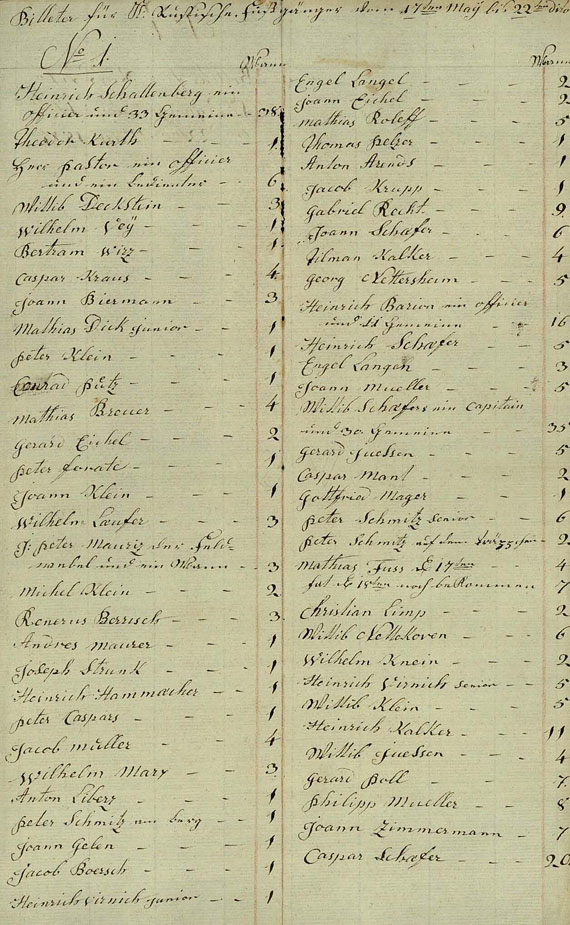 Billeter für St. Russische Fußgänger vom 17ten May bis 22ten dito
No 1.
Mann
Heinrich Schallenberg ein
officier und 33 Gemeine - 38
Theodor Kurth - 1
Herr pastor ein officier
und ein bedienter - 6
Wittib Deckstein - 3
Wilhelm Veÿ - 1
Bertram Wirz - - 1
Caspar Kraus - - - 4
Joann Biermann - - 3
Mathias Dick junior - - 1
peter Klein - - - 1
Conrad putz - - - 1
Mathias Breuer - - - 4
Gerard Eichel - - - 2
peter forate - - - 1
Joann Klein - - - 1
Wilhelm Laufer - - - 3
J: peter Mauriz der Feld-
webel und ein Mann - - 3
Michel Klein - - - 2
Renerus Berrisch - - 3
Andres maurer - - - 1
Joseph Strunk - - - 1
Heinrich Hammacher - - 1
peter Caspars - - - 1
Jacob müller - - - 4
Wilhelm Marx - - - 3
Anton Liberz - - - 1
peter Schmitz am berg - - 1
Joann Gelen - - - 1
Jacob Boersch - - - 1
Heinrich Virnich junior - - 1
Mann
Engel Langel - - - 2
Joann Eichel - - - 2
Mathias Roleff - - - 5
Thomas pelzer - - - 1
Anton Arends - - - 1
Jacob Krupp - - - 1
Gabriel Recht - - - 9
Joann Schäfer - - - 6
Tilman Kalker - - - 4
Georg Nettersheim - - - 5
Heinrich Barion ein officier
und 11 Gemeine - - 16
Heinrich Schæfer - - - 5
Engel Langen - - - 3
Joann Mueller - - - 5
Wittib Schæfers ein Capitain
und 30 Gemeine - - - 35
Gerard Juessen - - - 5
Caspar Manl - - - 2
Gottfried Mager - - - 1
peter Schmitz senior - - - 6
peter Schmitz auf dem - 2
Mathias Fuss d 17ten - 4
hat d 18ten noch bekommen 7
Christian Limp - - - 2
Wittib Nettekoven - - - 6
Wilhelm Knein - - - 2
Heinrich Virnich senior - - 5
Wittib Klein - - - 5
Heinrich Kalker - - - 11
Wittib Juessen - - - 4
Gerard poll - - - 7
philipp Mueller - - - 8
Joann Zimmermann - - 7
Caspar Schæfer - - - 20